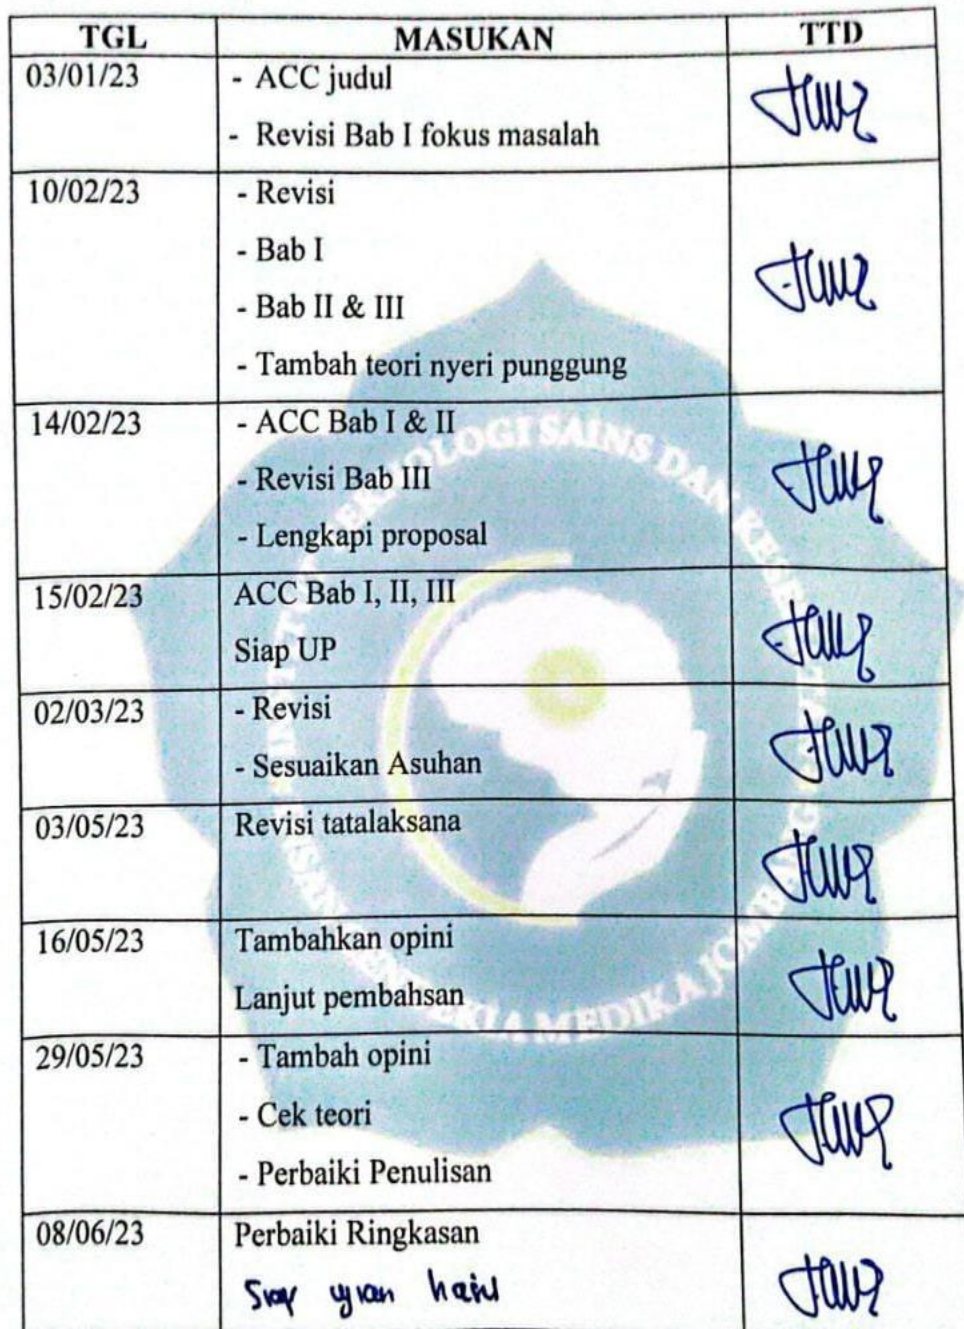 TGL MASUKAN TTD
03/01/23 - ACC judul
- Revisi Bab I fokus masalah
10/02/23 - Revisi
- Bab I
- Bab II & III
- Tambah teori nyeri punggung
14/02/23 - ACC Bab I & II
- Revisi Bab III
- Lengkapi proposal
15/02/23 ACC Bab I, II, III
Siap UP
02/03/23 - Revisi
- Sesuaikan Asuhan
03/05/23 Revisi tatalaksana
16/05/23 Tambahkan opini
Lanjut pembahsan
29/05/23 - Tambah opini
- Cek teori
- Perbaiki Penulisan
08/06/23 Perbaiki Ringkasan
Siap ujian hasil
SAINS DAN
MEDIKA